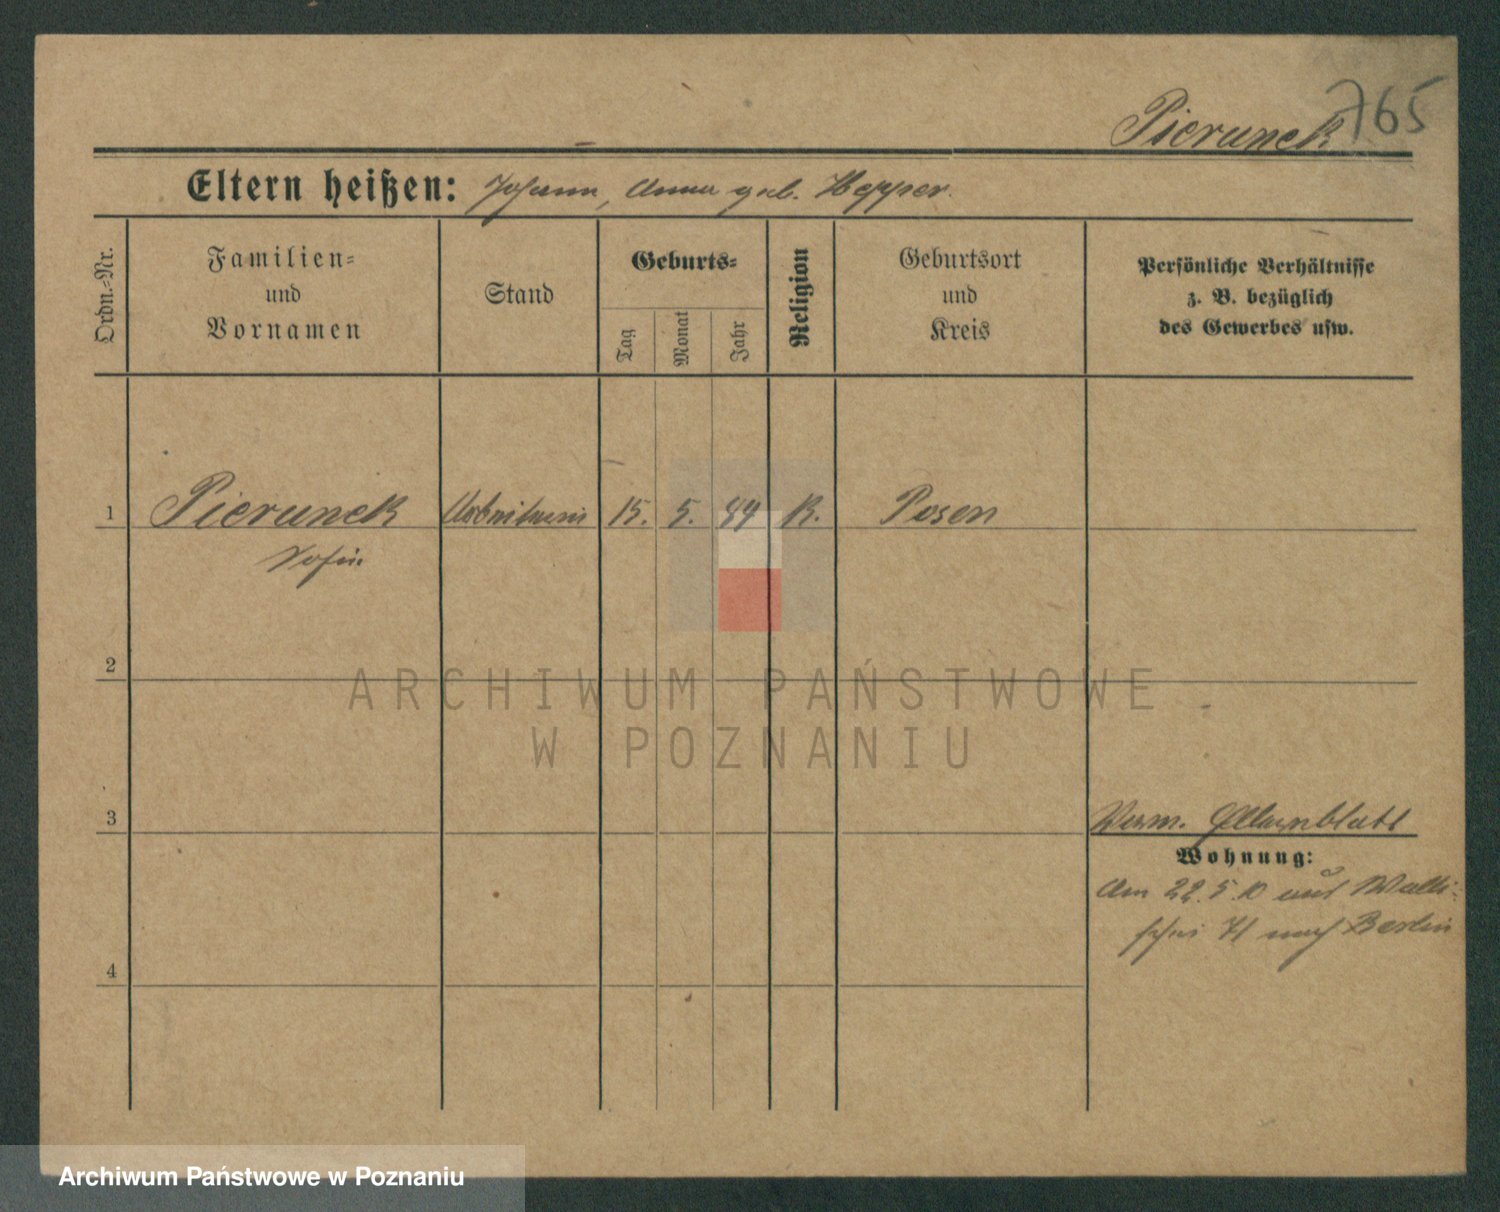 765
Pierunek
Eltern heißen: Johann, Anna geb. Hepper.
Ordn.=Nr.
Familien=
und
Vornamen
Stand
Geburts=
Tag
Monat
Jahr
Religion
Geburtsort
und
Kreis
Persönliche Verhältnisse
z. B. bezüglich
des Gewerbes usw.
1 Pierunek Arbeiterin 15. 5. K. Posen
Sofie
2
ARCHIWUM PAŃSTWOWE
W POZNANIU
3
Verm. Elternblatt
Wohnung:
Am 22.5.10 auf Walli=
schei 71 nach Berlin
4
Archiwum Państwowe w Poznaniu